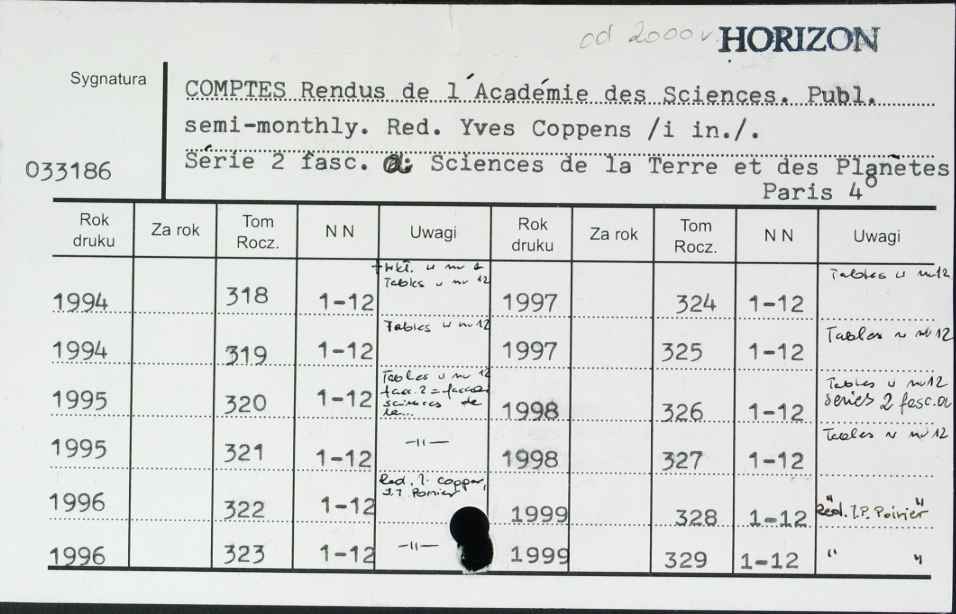 od 2000 r. HORIZON
Sygnatura
COMPTES Rendus de l'Académie des Sciences. Publ.
semi-monthly. Red. Yves Coppens /i in./.
033186
Série 2 fasc. a: Sciences de la Terre et des Planètes
Paris 4°
Rok druku Za rok Tom Rocz. N N Uwagi Rok druku Za rok Tom Rocz. N N Uwagi
1994 318 1-12 Tables w nr 12 1997 324 1-12 Tables w nr 12
1994 319 1-12 Tables w nr 12 1997 325 1-12 Tables w nr 12
1995 320 1-12 Tables w nr 12 fasc. 2 = sciences de la... 1998 326 1-12 Tables w nr 12 series 2 fasc. a
1995 321 1-12 -"- 1998 327 1-12 Tables w nr 12
1996 322 1-12 Red. 1999 328 1-12 Red. J.P. Poirier
1996 323 1-12 -"- 1999 329 1-12 " "